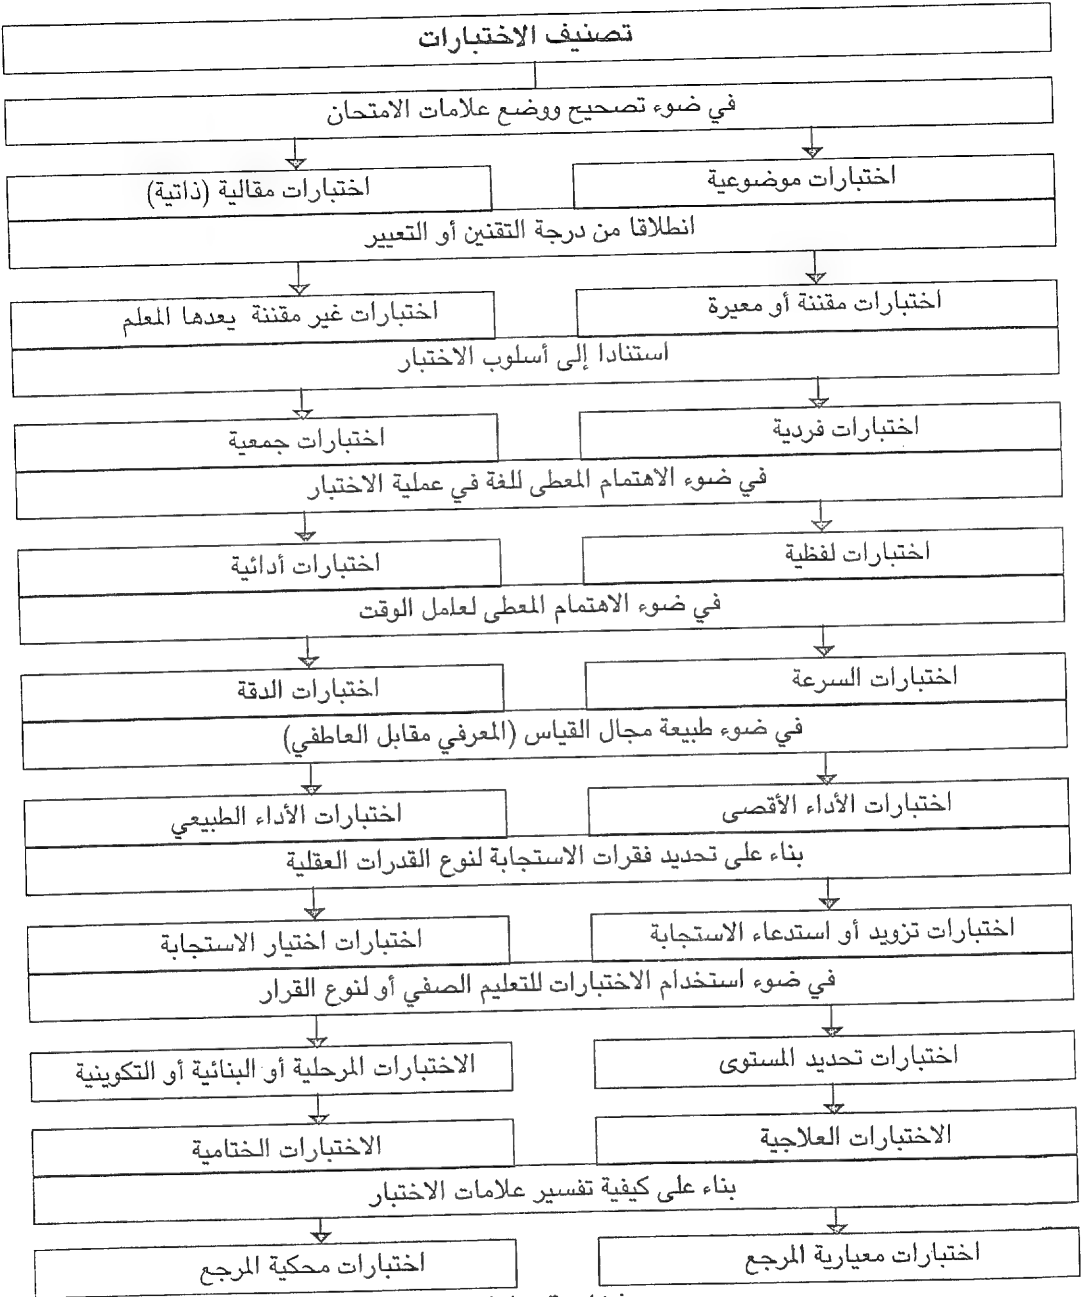 تصنيف الاختبارات
في ضوء تصحيح ووضع علامات الامتحان
اختبارات موضوعية
اختبارات مقالية (ذاتية)
انطلاقا من درجة التقنين أو التعيير
اختبارات مقننة أو معيرة
اختبارات غير مقننة يعدها المعلم
استنادا إلى أسلوب الاختبار
اختبارات فردية
اختبارات جمعية
في ضوء الاهتمام المعطى للغة في عملية الاختبار
اختبارات لفظية
اختبارات أدائية
في ضوء الاهتمام المعطى لعامل الوقت
اختبارات السرعة
اختبارات الدقة
في ضوء طبيعة مجال القياس (المعرفي مقابل العاطفي)
اختبارات الأداء الأقصى
اختبارات الأداء الطبيعي
بناء على تحديد فقرات الاستجابة لنوع القدرات العقلية
اختبارات تزويد أو استدعاء الاستجابة
اختبارات اختيار الاستجابة
في ضوء استخدام الاختبارات للتعليم الصفي أو لنوع القرار
اختبارات تحديد المستوى
الاختبارات المرحلية أو البنائية أو التكوينية
الاختبارات العلاجية
الاختبارات الختامية
بناء على كيفية تفسير علامات الاختبار
اختبارات معيارية المرجع
اختبارات محكية المرجع